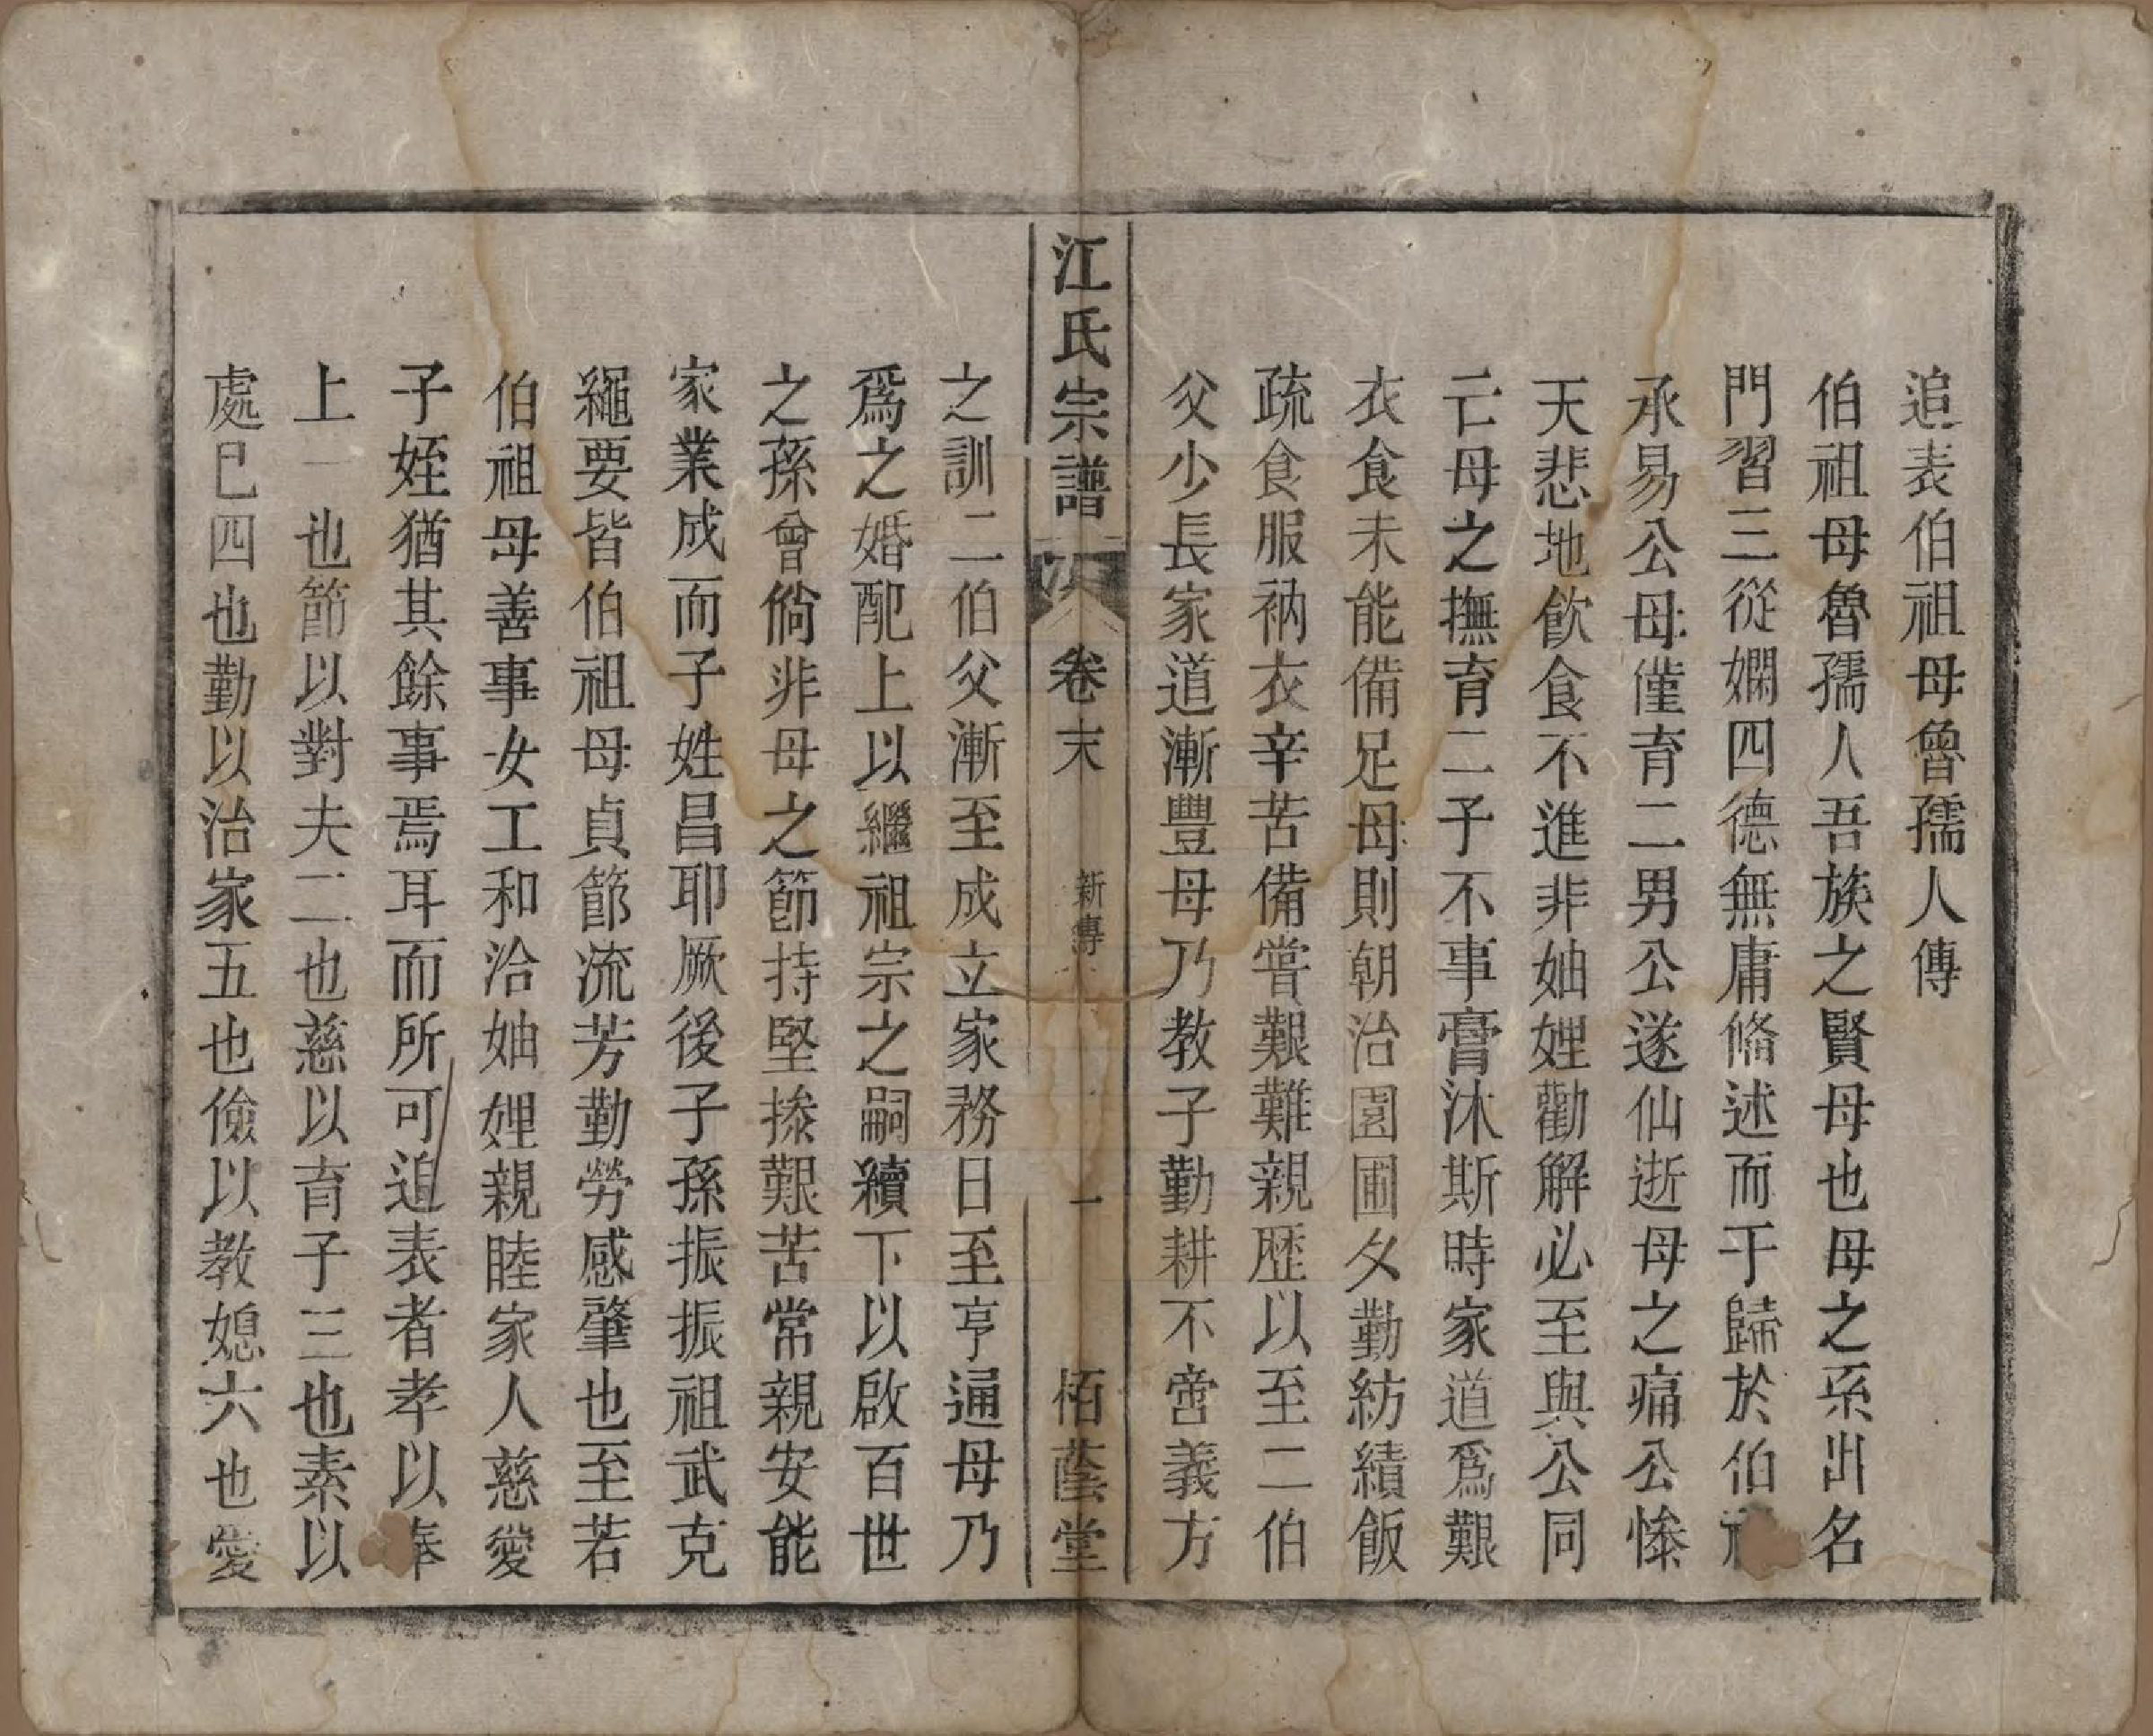 追表伯祖母曾孺人傳
伯祖母魯孺人吾族之賢母也母之系出名
門習三從嫻四德無庸絛述而于歸於伯
承易公母僅育二男公遂仙逝母之痛公慘
天悲地飲食不進非妯娌勸解必至與公同
亡母之撫育二子不事膏沐斯時家道爲艱
衣食未能備足母則朝治園圃夕勤紡績飯
疏食服衲衣辛苦備嘗艱難親歷以至二伯
父少長家道漸豐母乃教子勤耕不啻義方
江氏宗譜
卷末
新傳
一
栢蔭堂
之訓二伯父漸至成立家務日至亨通母乃
爲之婚配上以繼祖宗之嗣續下以啟百世
之孫曾倘非母之節持堅操艱苦常親安能
家業成而子姓昌耶厥後子孫振振祖武克
繩要皆伯祖母貞節流芳勤勞感肇也至若
伯祖母善事女工和洽妯娌親睦家人慈愛
子姪猶其餘事焉耳而所可追表者孝以奉
上一也節以對夫二也慈以育子三也素以
處已四也勤以治家五也儉以教媳六也愛